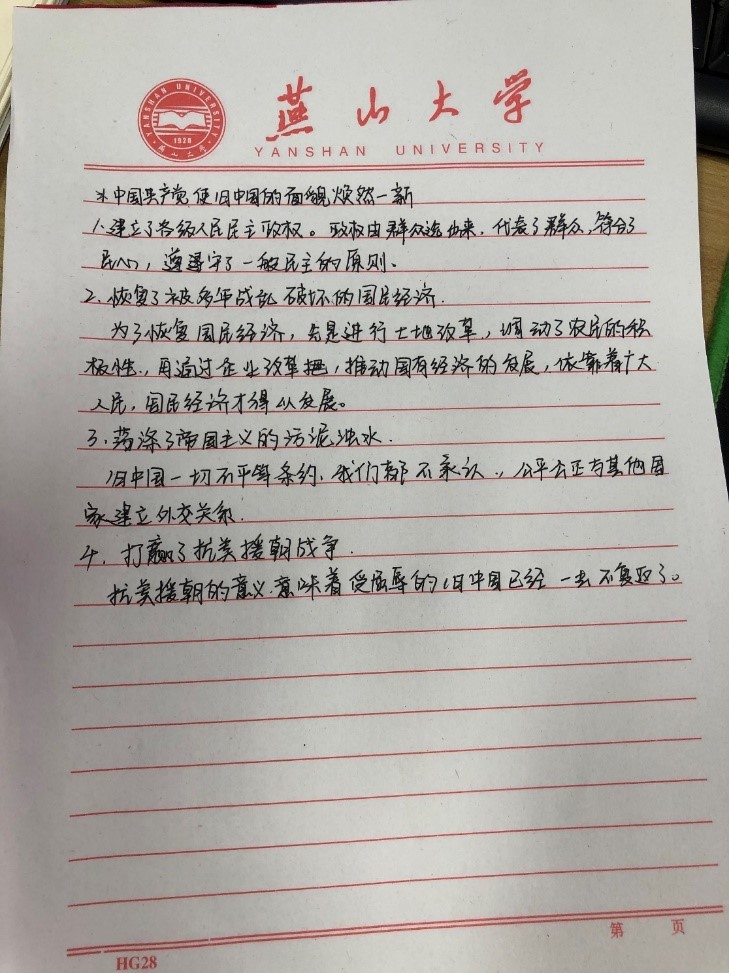 YANSHAN UNIVERSITY
1920
燕山大学
燕山大学
YANSHAN UNIVERSITY
*中国共产党使旧中国的面貌焕然一新
1.建立了各级人民民主政权。政权由群众选出来,代表了群众,符合了
民心,遵遵守了一般民主的原则、
2.恢复了被多年战乱破坏的国民经济.
为了恢复国民经济,先是进行土地改革,调动了农民的积
极性,再通过企业改革把,推动国有经济的发展,依靠着广大
人民,国民经济才得以发展。
3.荡涤了帝国主义的污泥浊水.
旧中国一切不平等条约、我们都不承认,公平公正与其他国
家建立外交关系.
4.打赢了抗美援朝战争.
抗美援朝的意义.意味着受屈辱的旧中国已经一去不复返了。
第 页
HG28